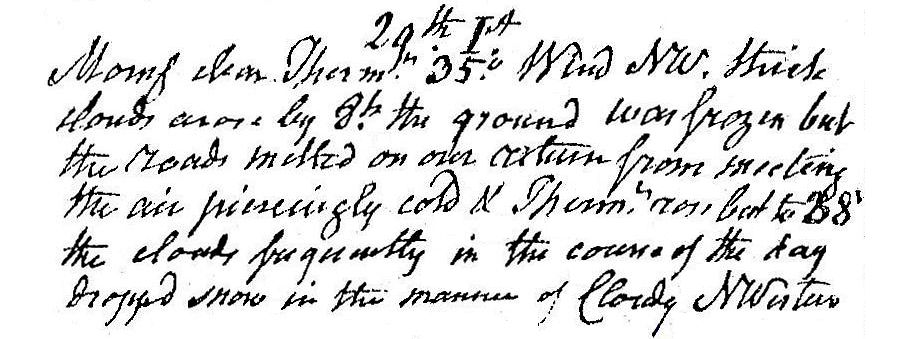 29th. 1st
Morng clear Thermr. 35°. Wind NW. thick
clouds arose by 8h. the ground was frozen but
the roads melted on our return from meeting
the air piercingly cold & Thermr. rose but to 38°
the clouds frequently in the course of the day
dropped snow in the manner of Cloudy NWesters